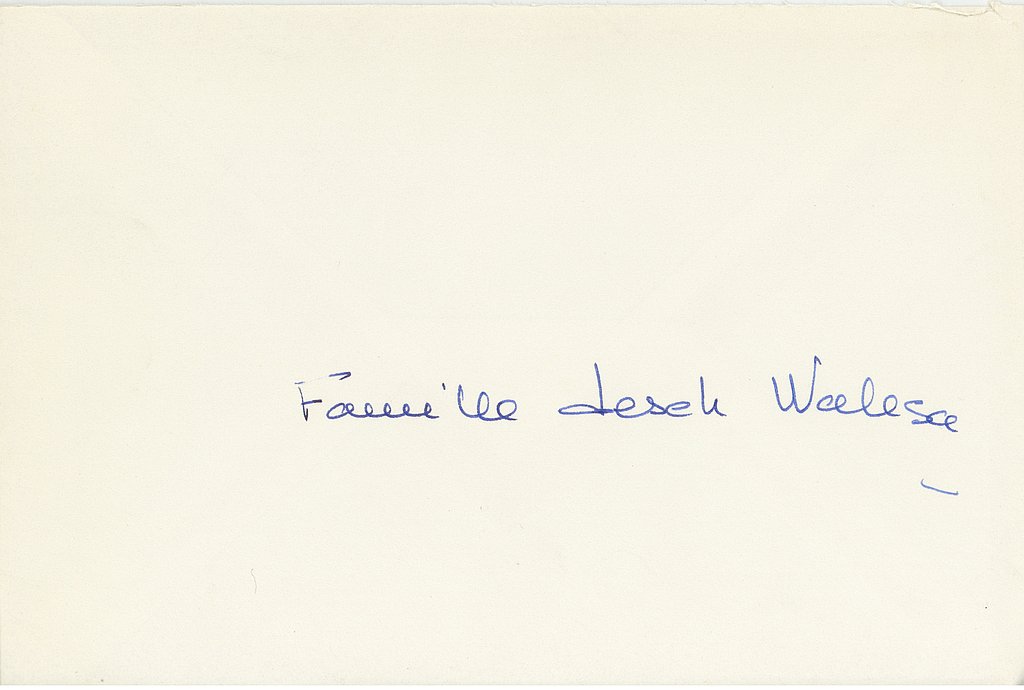 Famille Lesch Walesa